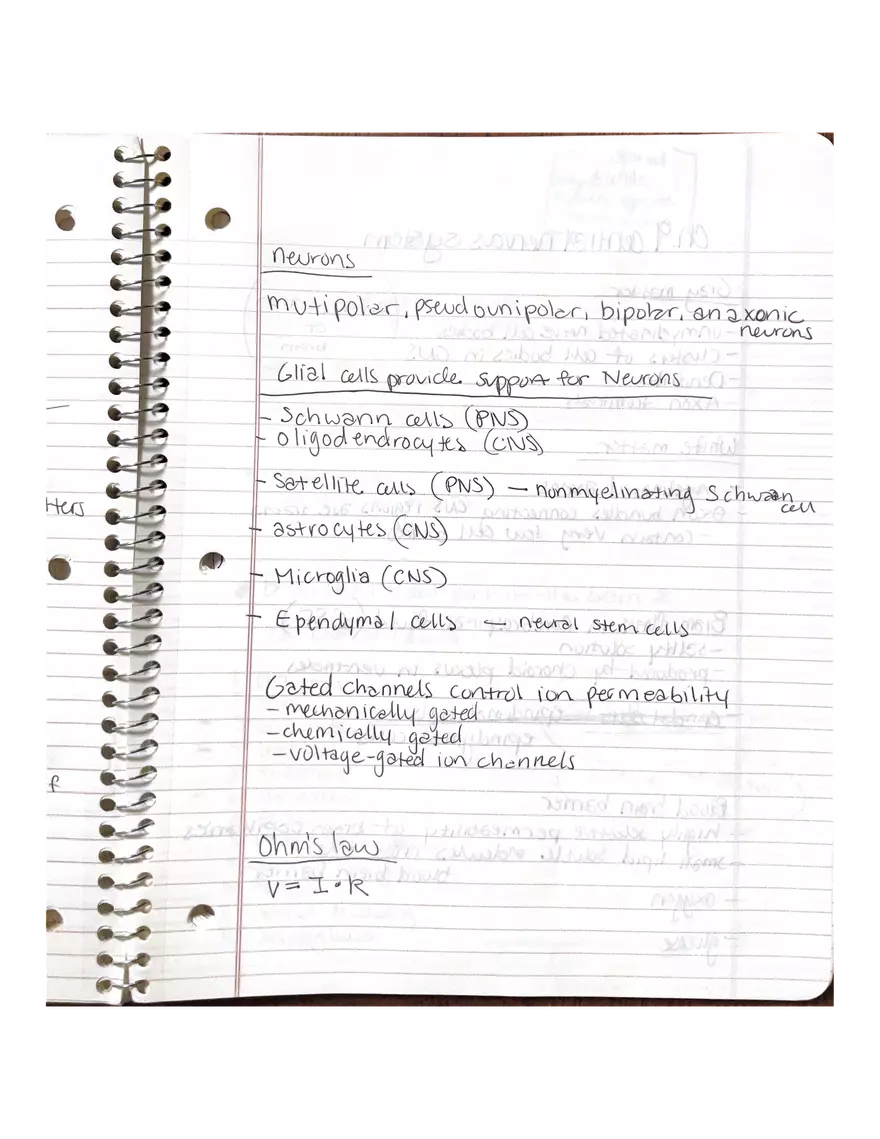 neurons
mutipolar, pseudounipolar, bipolar, anaxonic
neurons
Glial cells provide support for Neurons
- Schwann cells (PNS)
- oligodendrocytes (CNS)
- Satellite cells (PNS) — nonmyelinating Schwaan
cell
- astrocytes (CNS)
- Microglia (CNS)
- Ependymal cells — neural stem cells
Gated channels control ion permeability
- mechanically gated
- chemically gated
- voltage-gated ion channels
Ohm's law
V = I • R